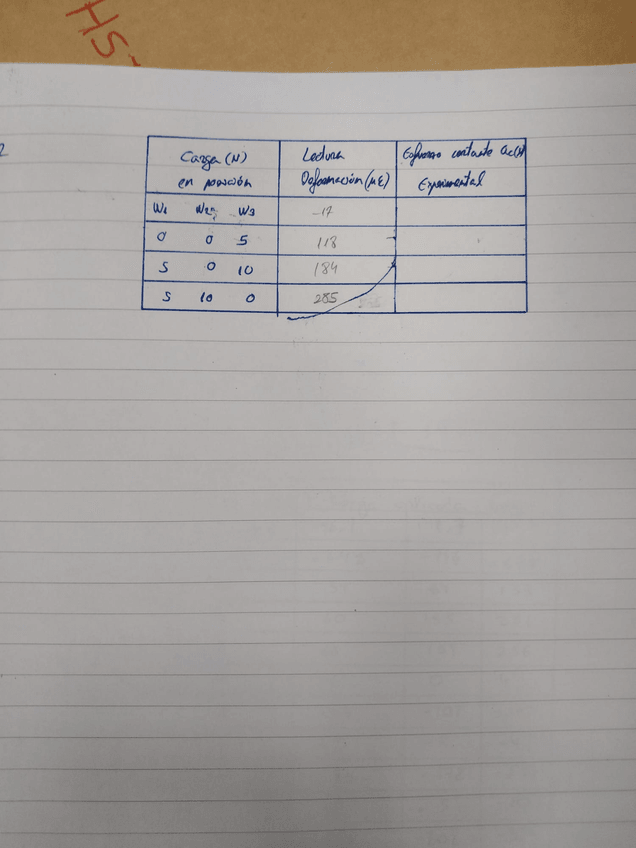 HS
2
Carga (N) en posición Lectura Deformación (με) Esfuerzo cortante Qc(N) Experimental
W1 W2 W3 -17
0 0 5 118
5 0 10 184
5 10 0 285